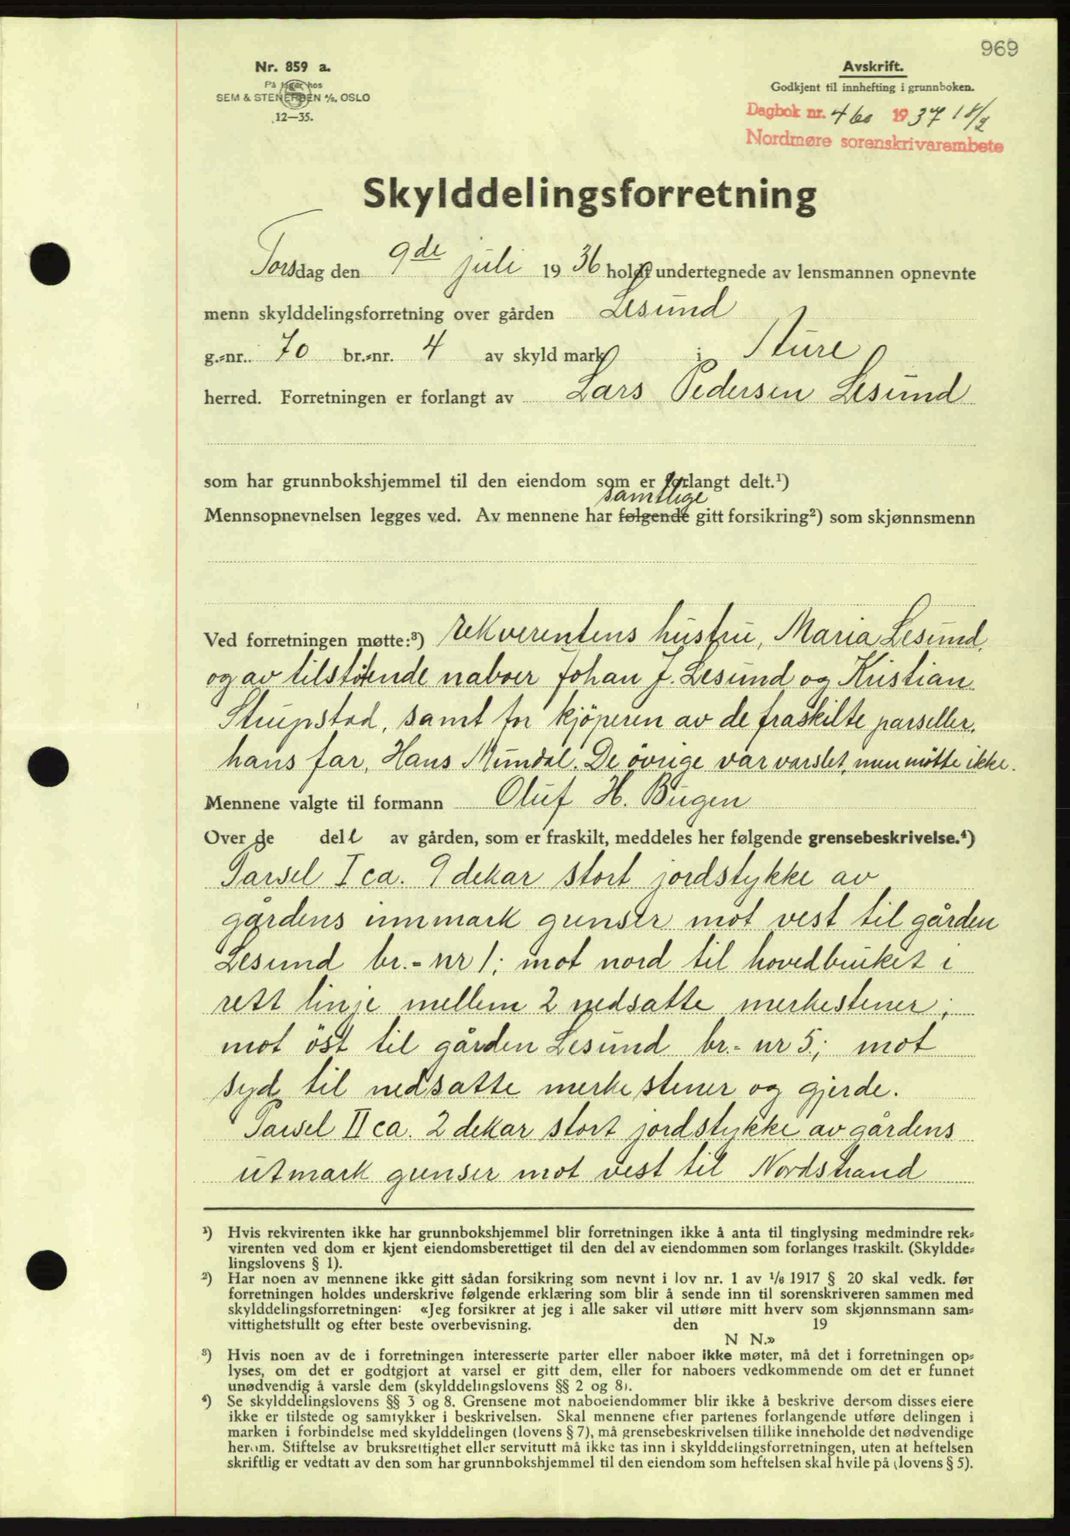 969
Nr. 859 a.
På lager hos
SEM & STENERSEN A/S, OSLO
12—35.
Avskrift.
Godkjent til innhefting i grunnboken.
Dagbok nr. 460 1937 18/2
Nordmøre sorenskrivarembete
Skylddelingsforretning
Torsdag den 9de juli 1936 holdt undertegnede av lensmannen opnevnte
menn skylddelingsforretning over gården Lesund
g.-nr. 70 br.-nr. 4 av skyld mark i Sture
herred. Forretningen er forlangt av Lars Pedersen Lesund
som har grunnbokshjemmel til den eiendom som er forlangt delt.¹)
samtlige
Mennsopnevnelsen legges ved. Av mennene har følgende gitt forsikring²) som skjønnsmenn
Ved forretningen møtte:³) rekverentens hustru, Maria Lesund,
og av tilstötende naboer Johan J. Lesund og Kristian
Strupstad, samt for kjöperen av de fraskilte parseller,
hans far, Hans Mundal. De övrige var varslet, men mötte ikke.
Mennene valgte til formann Oluf H. Bugen
Over de dele av gården, som er fraskilt, meddeles her følgende grensebeskrivelse.⁴)
Parsel I ca. 9 dekar stort jordstykke av
gårdens innmark grenser mot vest til gården
Lesund br.-nr 1; mot nord til hovedbruket i
rett linje mellem 2 nedsatte merkestener;
mot öst til gården Lesund br.-nr 5; mot
syd til nedsatte merkestener og gjerde.
Parsel II ca. 2 dekar stort jordstykke av gårdens
utmark grenser mot vest til Nordstrand
¹) Hvis rekvirenten ikke har grunnbokshjemmel blir forretningen ikke å anta til tinglysing medmindre rek-
virenten ved dom er kjent eiendomsberettiget til den del av eiendommen som forlanges fraskilt. (Skyldde-
lingslovens § 1).
²) Har noen av mennene ikke gitt sådan forsikring som nevnt i lov nr. 1 av 1/6 1917 § 20 skal vedk. før
forretningen holdes underskrive følgende erklæring som blir å sende inn til sorenskriveren sammen med
skylddelingsforretningen: «Jeg forsikrer at jeg i alle saker vil utføre mitt hverv som skjønnsmann sam-
vittighetsfullt og efter beste overbevisning. den 19
N N.»
³) Hvis noen av de i forretningen interesserte parter eller naboer ikke møter, må det i forretningen op-
lyses, om det er godtgjort at varsel er gitt dem, eller for naboers vedkommende om det er funnet
unødvendig å varsle dem (skylddelingslovens §§ 2 og 8).
⁴) Se skylddelingslovens §§ 3 og 8. Grensene mot naboeiendommer blir ikke å beskrive dersom disses eiere
ikke er tilstede og samtykker i beskrivelsen. Skal mennene efter partenes forlangende utføre delingen i
marken i forbindelse med skylddelingen (lovens § 7), må grensebeskrivelsen tillike inneholde det nødvendige
herom. Stiftelse av bruksrettighet eller servitutt må ikke tas inn i skylddelingsforretningen, uten at heftelsen
skriftlig er vedtatt av den som har grunnbokshjemmel til den eiendom som heftelsen skal hvile på (lovens § 5).